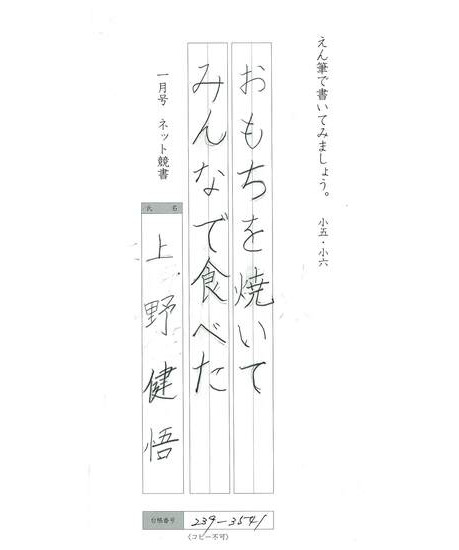 えん筆で書いてみましょう。 小五・小六
おもちを焼いて
みんなで食べた
一月号 ネット競書
氏名
上野健悟
台帳番号 239-3541
〈コピー不可〉